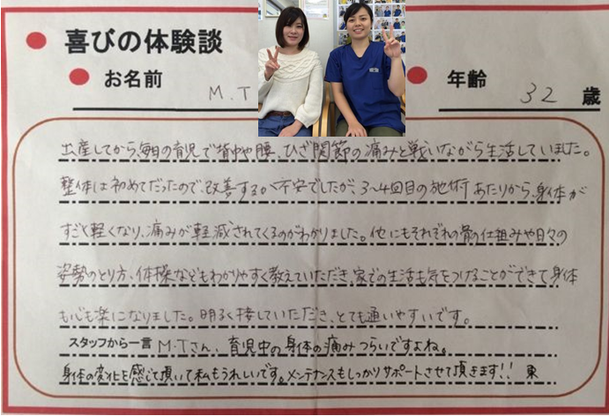 喜びの体験談
お名前 M.T
年齢 32 歳
出産してから、毎日の育児で背中や腰、ひざ関節の痛みと戦いながら生活していました。
整体は初めてだったので、改善するか不安でしたが、3〜4回目の施術あたりから、身体が
すごく軽くなり、痛みが軽減されてくるのがわかりました。他にもそれぞれの骨の仕組みや日々の
姿勢のとり方、体操などもわかりやすく教えていただき、家での生活も気をつけることができて身体
も心も楽になりました。明るく接していただき、とても通いやすいです。
スタッフから一言 M.Tさん、育児中の身体の痛みつらいですよね。
身体の変化を感じて頂いて私もうれしいです。メンテナンスもしっかりサポートさせて頂きます!! 東